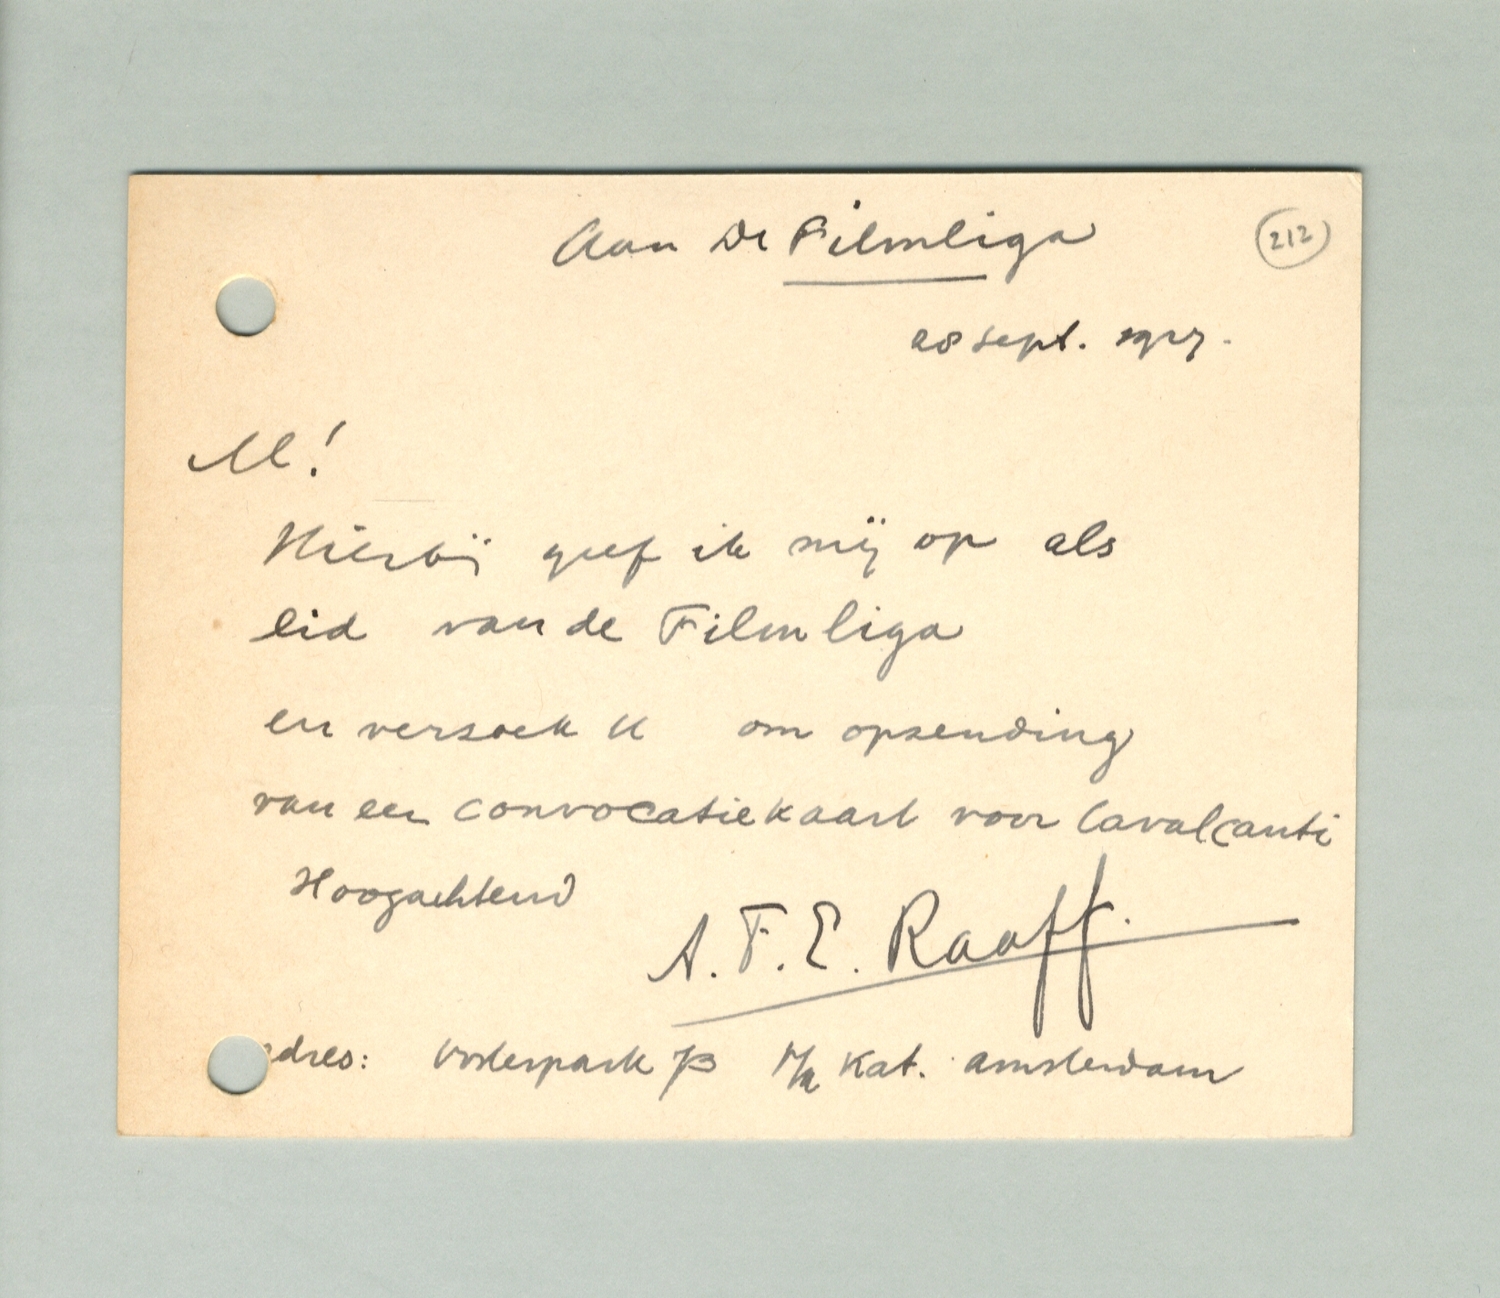 Aan De Filmliga
212
28 sept. 1927.
M!
Hierbij geef ik mij op als
lid van de Filmliga
en verzoek U om opzending
van een convocatiekaart voor Cavalcanti
Hoogachtend
A. F. E. Raaff.
adres: Oosterpark 73 Kat. Amsterdam